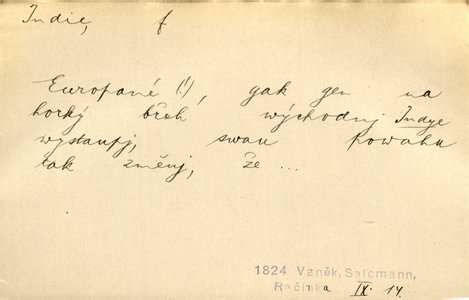 Indie, f
Europané (!), gak gen na
horký břeh východnj Indye
wystaupj, swau powahu
tak změnj, že ...
1824 Vaněk, Salcmann,
Rečinka IX. 14.